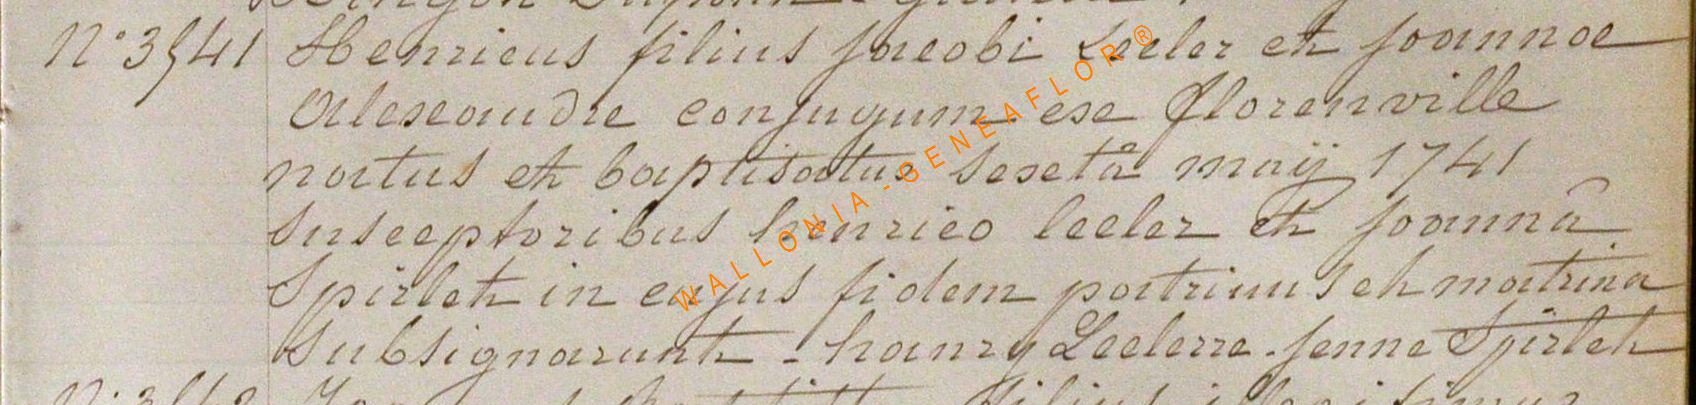 N° 3541 Henricus filius jacobi Lecler et joannae
Alexandre conjugum ex florenville
natus et baptisatus sextâ maÿ 1741
susceptoribus henrico lecler et joannâ
Spirlet in cujus fidem patrinus et matrina
subsignarunt - hanry Leclerre - jenne Spirlet
WALLONIA - GENEAFLOR ®